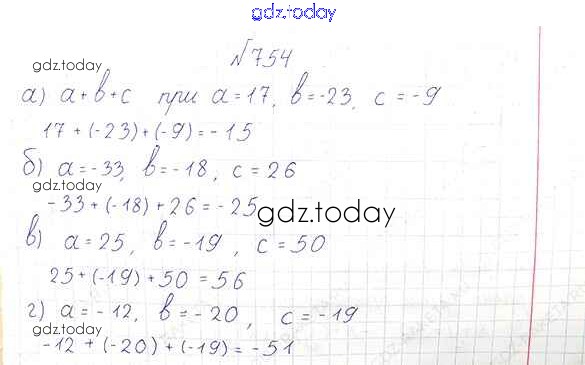 gdz.today
№754
gdz.today
а) a+b+c при a=17, b=-23, c=-9
17+(-23)+(-9)=-15
б) a=-33, b=-18, c=26
gdz.today
-33+(-18)+26=-25
gdz.today
в) a=25, b=-19, c=50
25+(-19)+50=56
г) a=-12, b=-20, c=-19
gdz.today
-12+(-20)+(-19)=-51